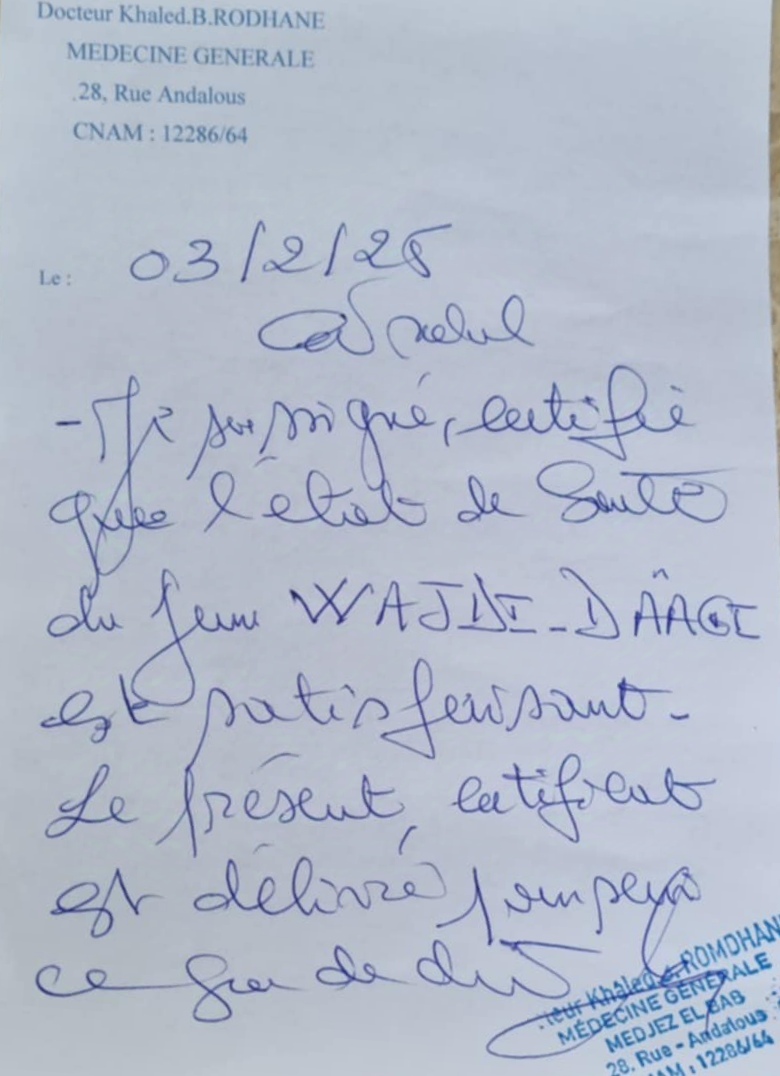 Docteur Khaled.B.RODHANE
MEDECINE GENERALE
28, Rue Andalous
CNAM : 12286/64
Le : 03/2/26
- Je sousigné, certifie
que l'état de Santé
du jeune WAJDI-DÂAGI
est satisfaisant-
Le présent certificat
est délivré pour servir
ce que de droit
Khaled ROMDHAN
MÉDECINE GÉNÉRALE
MEDJEZ EL BAB
28. Rue - Andalous
12286/64